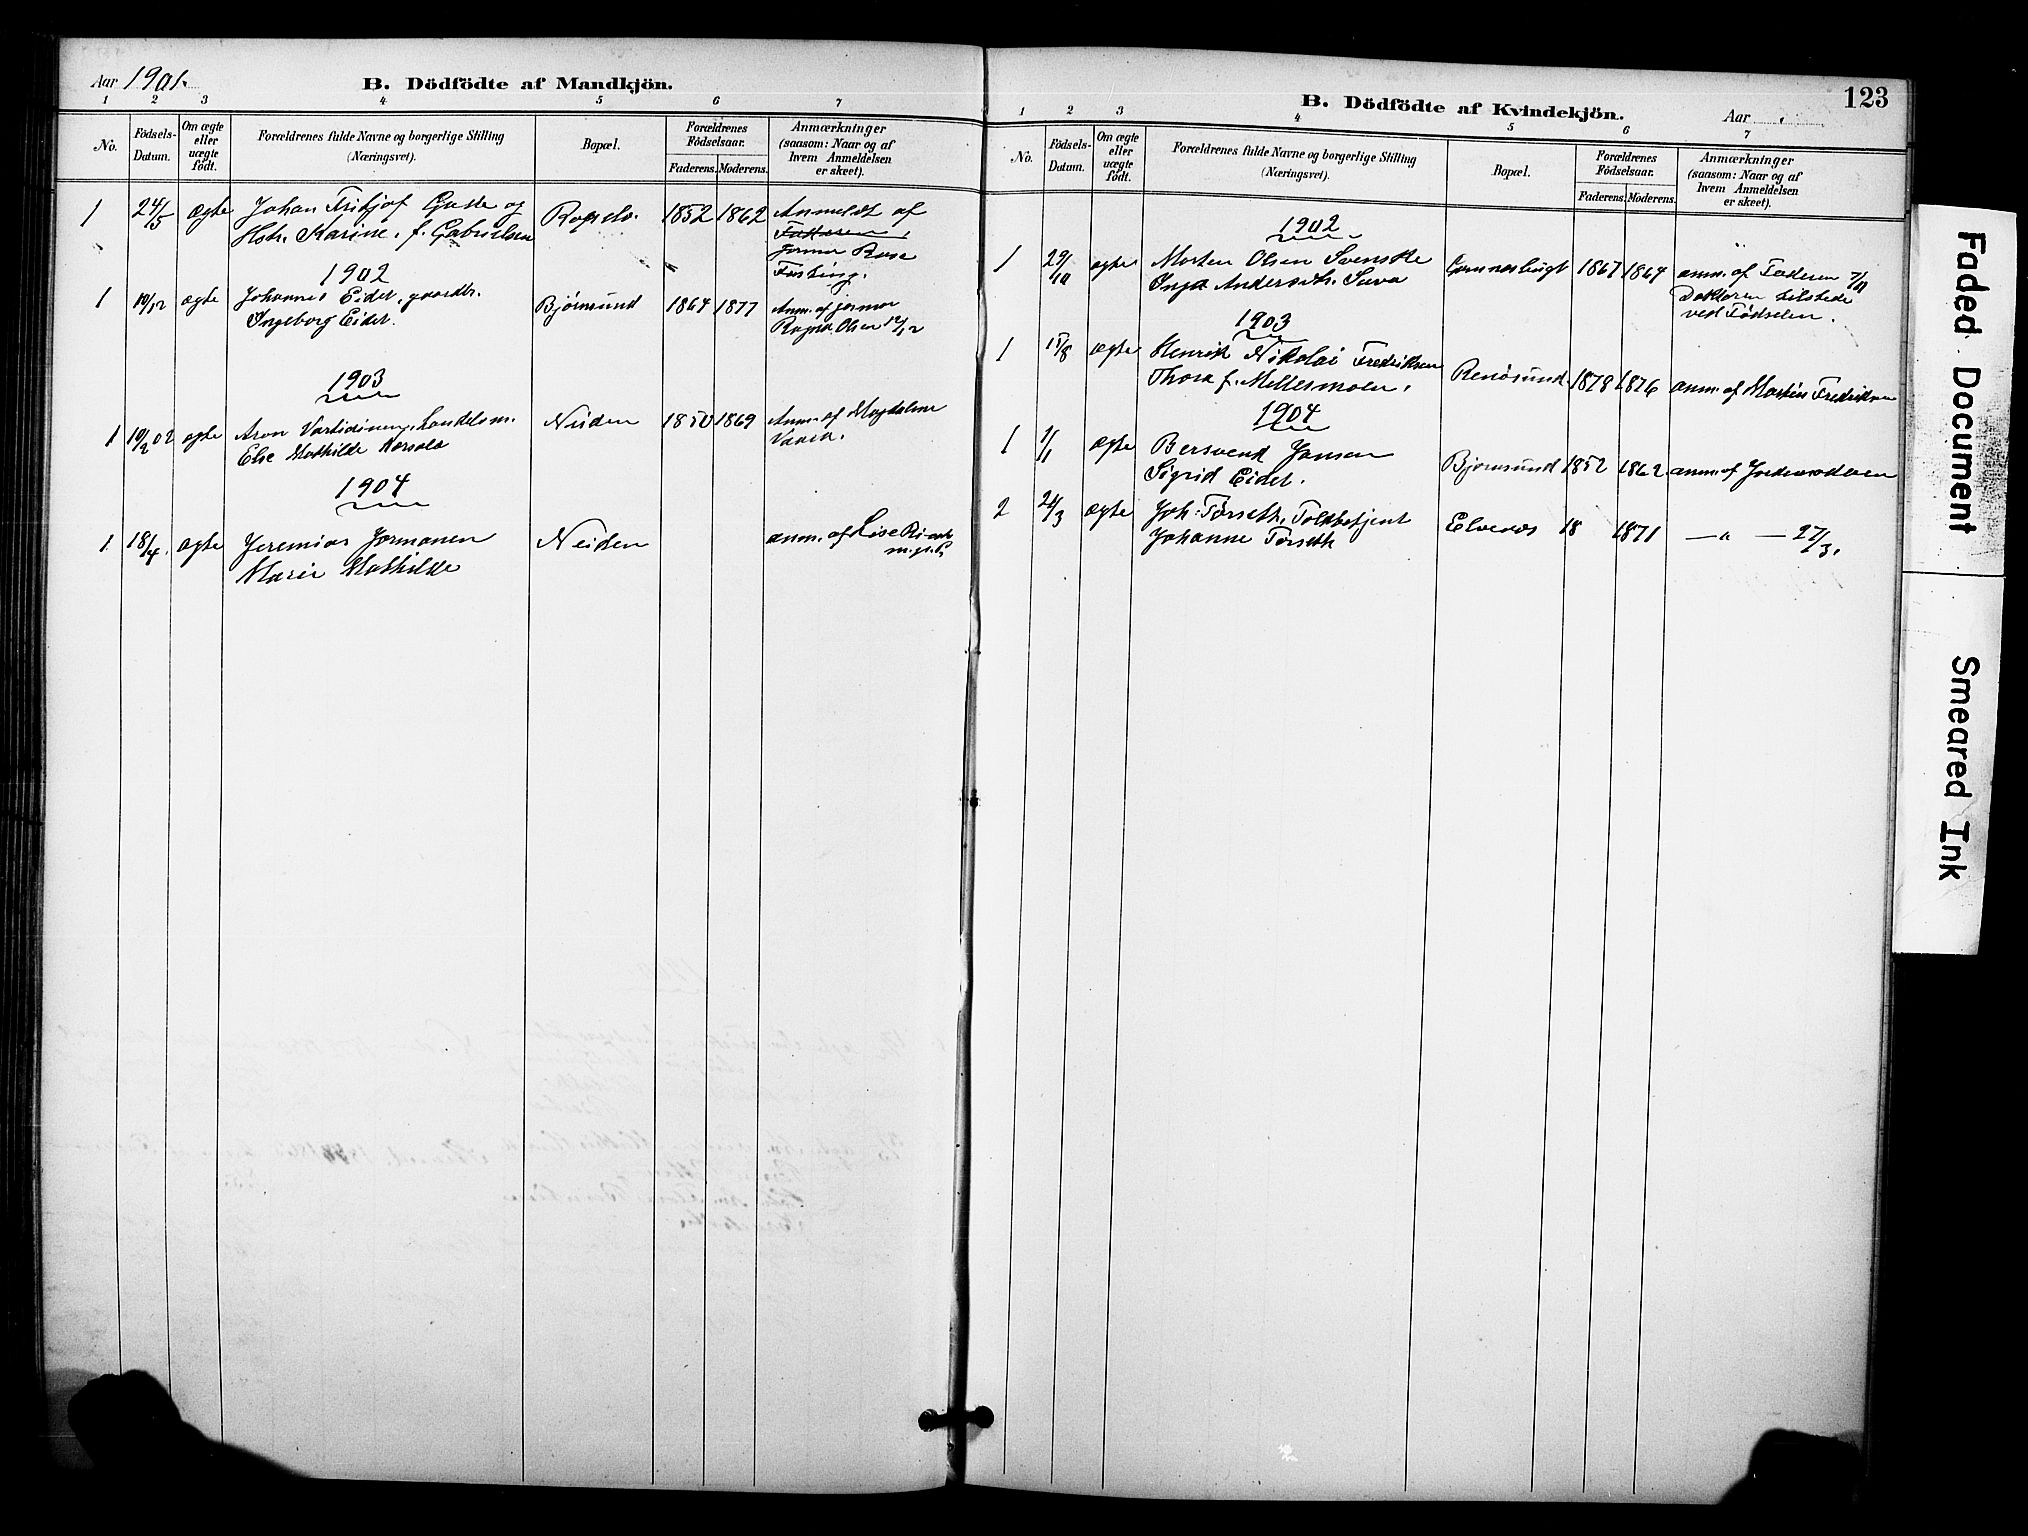 Aar 1901.
B. Dödfödte af Mandkjön.
1 2 3 4 5 6 7
No.
Födsels-
Datum.
Om ægte
eller
uægte
födt.
Forældrenes fulde Navne og borgerlige Stilling
(Næringsvei).
Bopæl.
Forældrenes
Födselsaar.
Faderens. Moderens.
Anmærkninger
(saasom: Naar og af
hvem Anmeldelsen
er skeet).
1 24/5 ægte Johan Fritjof og 1852 1862 Anmeldt af
Hstr. Karine, f. Gabrielsen
Faderen,
Jormor
1902
1 10/12 ægte Johannes Eidet, gaardbr. Bjørnsund 1864 1877 Anm. af jormor
Ingeborg Eidet. Olsen 12/12
1903
1 10/2 02 ægte Aron Neiden 1850 1869 Anm. af Magdalena
Else Mathilde
1904
1 18/4 ægte Jeremias Jormanen Neiden anm. af Lise
Marie Mathilde
B. Dödfödte af Kvindekjön.
Aar
123
1 2 3 4 5 6 7
No.
Födsels-
Datum.
Om ægte
eller
uægte
födt.
Forældrenes fulde Navne og borgerlige Stilling
(Næringsvei).
Bopæl.
Forældrenes
Födselsaar.
Faderens. Moderens.
Anmærkninger
(saasom: Naar og af
hvem Anmeldelsen
er skeet).
1902
1 29/10 ægte Morten Olsen Svenske 1867 1864 anm. af Faderen 7/11
Inga Andersdtr. Sava Doktoren tilstede
ved Fødselen.
1903
1 15/8 ægte Henrik Nikolai Fredriksen Renøsund 1878 1876 anm. af Fredriksen
Thora f. Mellesmoen.
1904
1 1/1 ægte Bersvend Jonsen Bjørnsund 1852 1862 anm. af Jordemoderen
Sigrid Eidet.
2 24/3 ægte Joh. Torseth, Toldbetjent Elvenes 18 1871 — " — 27/3.
Johanne Torseth
Faded Document
Smeared Ink